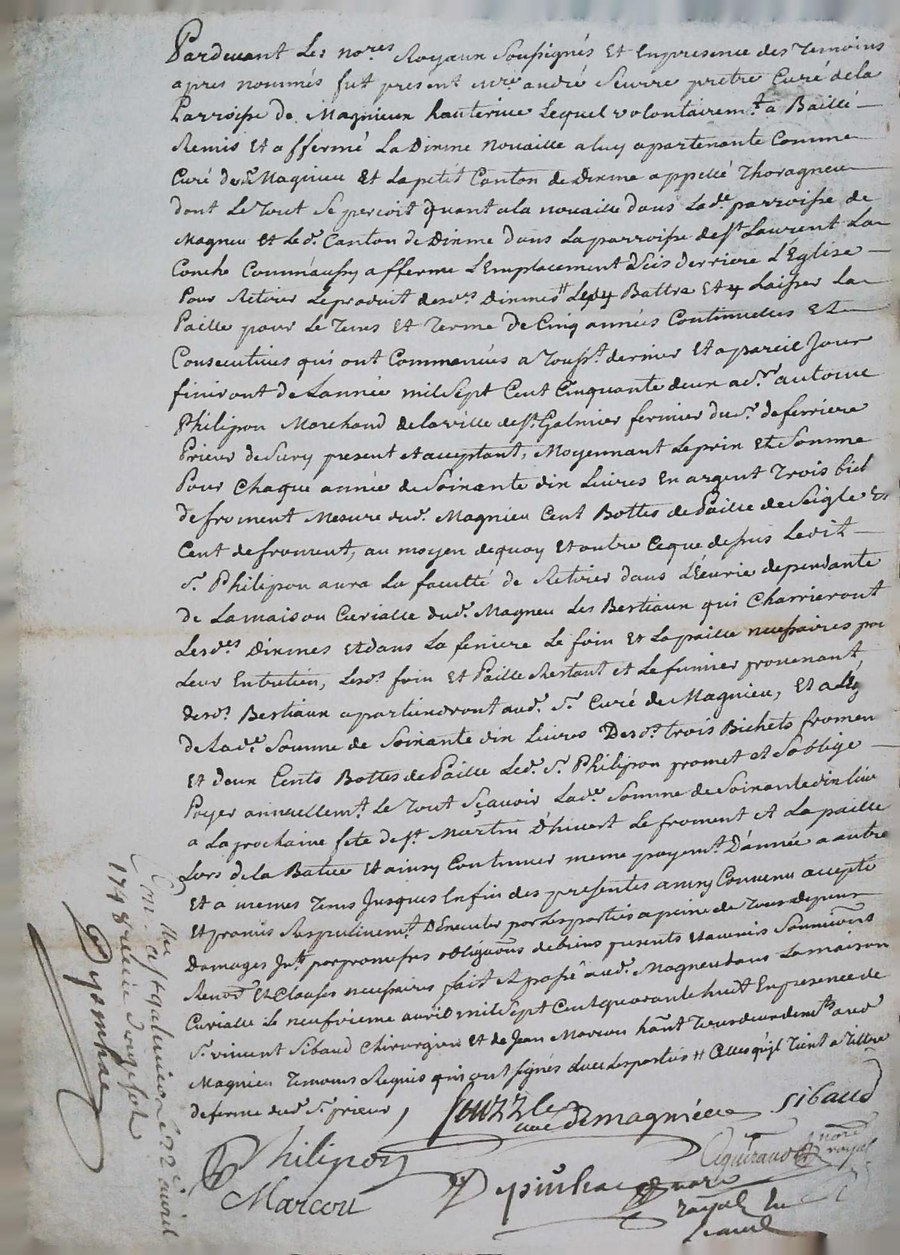 Pardevant Les no.res Royaux Soussignés Et En presence des Temoins
apres nommés fut present m.re andré Seurre prêtre Curé de la
Parroisse de Magnieux hauterive Lequel volontairem.t a Baillé
Remis Et affermé La Dixme novaille a luy apartenante Comme
Curé dud. Magnieu Et La petit Canton de Dixme appellé Thoragneu
dont Le Tout Se percoit quant a la novaille dans Lad.e parroisse de
Magneu Et Led. Canton de Dixme dans La parroisse de S.t Laurent La
Conche Comm'aussy afferme L'Emplacement derriere L'Eglise
Pour Retirer Le produit desd.es Dixmes Battra Et y Laisser La
Paille pour Le Tems Et Terme De Cinq années Continuelles Et
Consecutives qui ont Commencées a Touss.t dernier Et a pareil Jour
finiront de L'année mil Sept Cent Cinquante deux a s.r antoine
Philipon Marchand de la ville de S.t Galmier fermier du s.r de ferriere
Prieur de Sury present et acceptant, Moyennant Le prix Et Somme
Pour Chaque année de Soixante dix Livres En argent Trois bich
de froment Mesure dud. Magnieu Cent Bottes de Paille de Seigle Et
Cent de froment, au moyen de quoy Et outre Ce que dessus Ledit
S.r Philipon aura La faculté de Retirer dans L'Ecurie dependante
de La maison Curialle dud. Magneu Les Bestiaux qui Charrieront
Lesd.es Dixmes Et dans La feniere Le foin Et La paille necessaires pour
Leur Entretien, Lesd.t foin Et Paille Restant et Le fumier provenant
desd.t Bestiaux apartiendront aud. S.r Curé de Magnieu, Et
de Lad.e Somme de Soixante dix Livres Desd.t trois Bichets fromen
Et deux Cents Bottes de Paille Led. S.r Philipon promet et S'oblige
Payer annuellem.t Le Tout Sçavoir Lad.e Somme de Soixante dix Liv
a La prochaine fête de S.t Martin D'hivert Le froment Et La paille
Lors de la Batue Et ainsy Continuer meme payem.t D'année a autre
Et a mêmes Tems Jusques la fin des presentes ainsy Convenu accepté
Et promis Respectivem.t D'Executer par Les parties a peine de Tous Depens
Domages Int. par promesses obligaons de biens presents et avenir Soumiôns
Renôns Et Clauses necessaires fait Et passé aud. Magneu dans La maison
Curialle Le neufvieme avril mil Sept Cent quarante huit En presence de
S.r vincent Sibaud Chirurgien Et de Jean Marcou hant Tous deux aud
Magnieu Temoins Requis qui ont signés avec Les parties # Celles qu'il Tient a Tittre
de ferme dud. S.r prieur,
curé de magnieu Sibaud
Philipon
Marcou
Depinhac nore
royal
no.re
royal
Con. a S.t galmier le 22 avril
1748